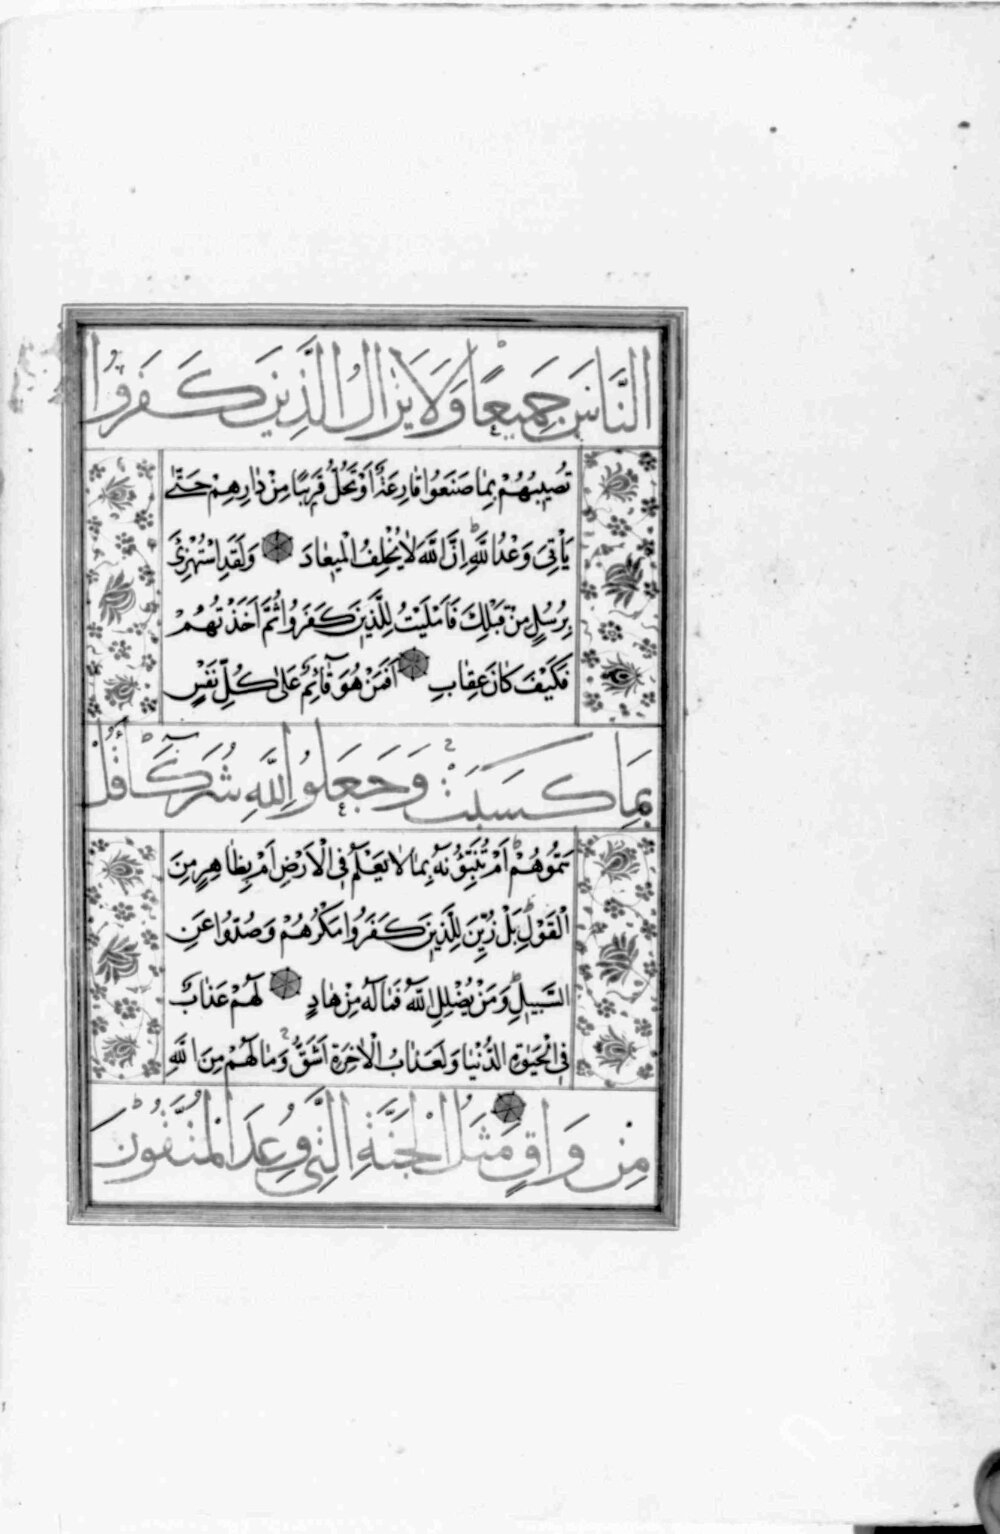 النَّاسَ جَمِيعًا وَلَا يَزَالُ الَّذِينَ كَفَرُوا
تُصِيبُهُمْ بِمَا صَنَعُوا قَارِعَةٌ أَوْ تَحُلُّ قَرِيبًا مِنْ دَارِهِمْ حَتَّى
يَأْتِيَ وَعْدُ اللَّهِ اِنَّ اللَّهَ لَا يُخْلِفُ الْمِيعَادَ وَلَقَدِ اسْتُهْزِئَ
بِرُسُلٍ مِنْ قَبْلِكَ فَاَمْلَيْتُ لِلَّذِينَ كَفَرُوا ثُمَّ اَخَذْتُهُمْ
فَكَيْفَ كَانَ عِقَابِ اَفَمَنْ هُوَ قَآئِمٌ عَلَى كُلِّ نَفْسٍ
بِمَا كَسَبَتْ وَجَعَلُوا لِلَّهِ شُرَكَآءَ قُلْ
سَمُّوهُمْ اَمْ تُنَبِّؤُنَهُ بِمَا لَا يَعْلَمُ فِي الْاَرْضِ اَمْ بِظَاهِرٍ مِنَ
الْقَوْلِ بَلْ زُيِّنَ لِلَّذِينَ كَفَرُوا مَكْرُهُمْ وَصُدُّوا عَنِ
السَّبِيلِ وَمَنْ يُضْلِلِ اللَّهُ فَمَا لَهُ مِنْ هَادٍ لَهُمْ عَذَابٌ
فِي الْحَيٰوةِ الدُّنْيَا وَلَعَذَابُ الْاٰخِرَةِ اَشَقُّ وَمَا لَهُمْ مِنَ اللَّهِ
مِنْ وَاقٍ مَثَلُ الْجَنَّةِ الَّتِي وُعِدَ الْمُتَّقُونَ